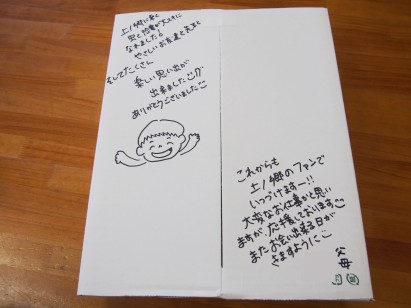 上ノ郷に来て
虫と給食が大スキに
なれました!
やさしいお友達と先生と
そしてたくさん
楽しい思い出が
出来ました
ありがとうございました
これからも
上ノ郷のファンで
いつづけますー!!
大変なお仕事かと思い
ますが、応援しております
またお会い出来る日が
きますように
父母